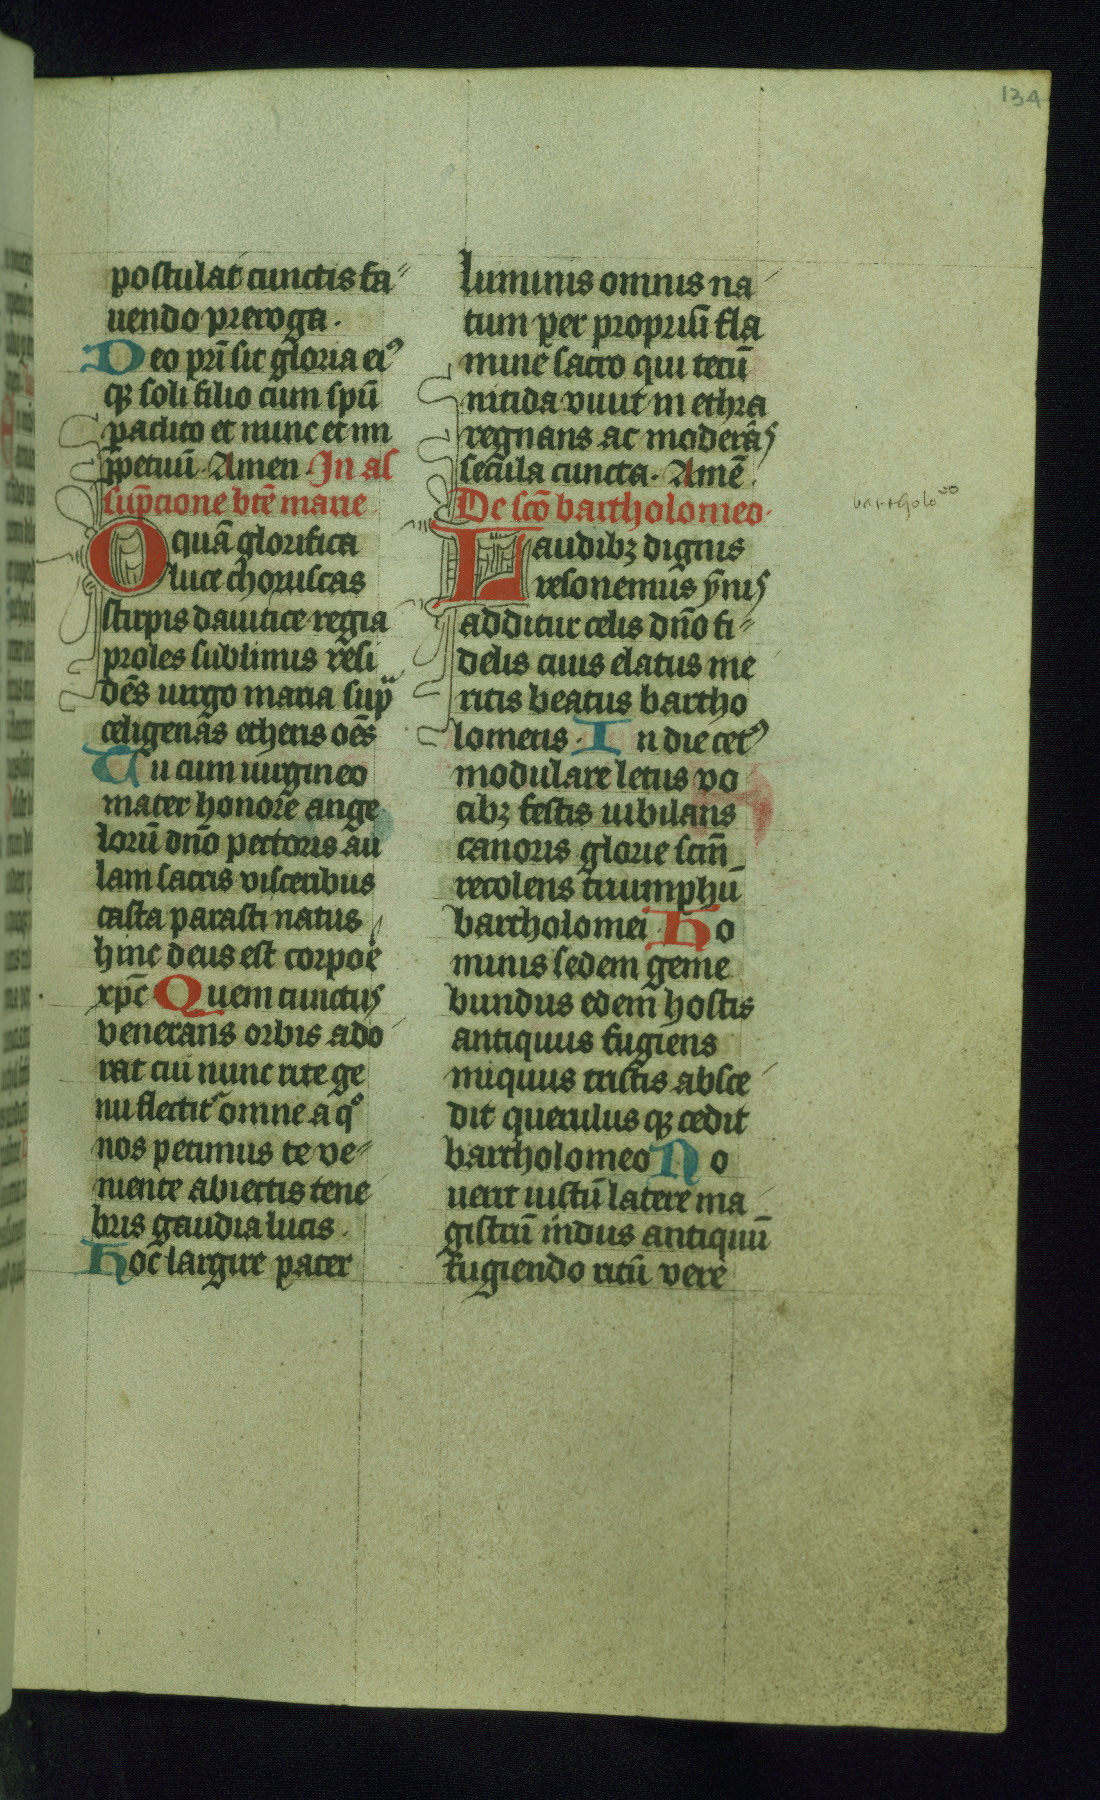 134
postulat cunctis fa⸗
uendo preroga.
Deo pr̄i sit gloria ei⁹
qꝫ soli filio cum spū
paclito et nunc et im
ꝑpetuū. Amen In as
sūpcione btē marie
O quā glorifica
luce choruscas
stirpis dauitice regia
proles sublimis resi
dēs uirgo maria sup̄
celigenās etheris oēs
Tu cum uirgineo
mater honore ange
lorū dn̄o pectoris au
lam sacris visceribus
casta parasti natus
hinc deus est corpore
xpc̄ Quem cunctis
venerans orbis ado
rat cui nunc rite ge
nu flectit᷑ omne a qͦ
nos petimus te ve⸗
niente abiectis tene
bris gaudia lucis.
Hoc largire pater
luminis omnis na
tum per propriū fla
mine sacro qui tecū
nitida viuit in ethra
regnans ac moderās
secula cuncta. Amē.
De scō bartholomeo.
bartholo
Laudibꝫ dignis
resonemus ẏnis
additur celis dn̄o fi⸗
delis cuius elatus me
ritis beatus bartho
lomeus. In die cet⁹
modulare letus vo
cibꝫ festis iubilans
canoris glorie scm̄
recolens triumphū
bartholomei Ho
minis sedem geme
bundus edem hostis
antiquus fugiens
iniquus tristis absce
dit querulus qꝫ cedit
bartholomeo No
uerit iustū latere ma
gistrū indus antiquū
fugiendo ritū vere